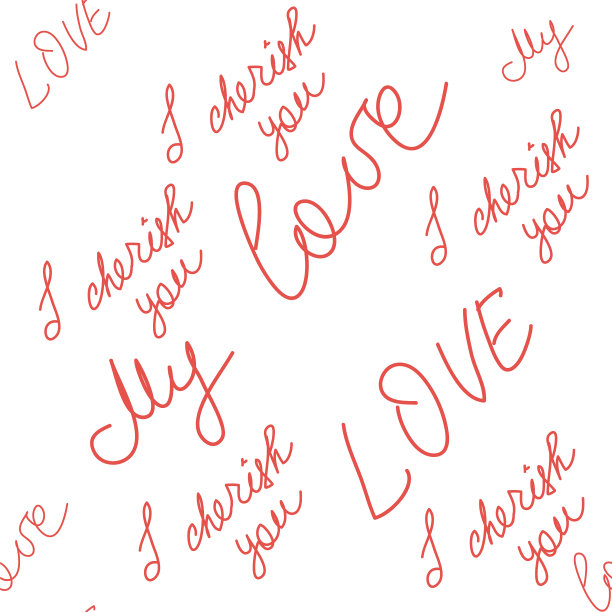 LOVE
I cherish
you
My
love
I cherish
you
I cherish
you
My
LOVE
I cherish
you
I cherish
you
ove
lo